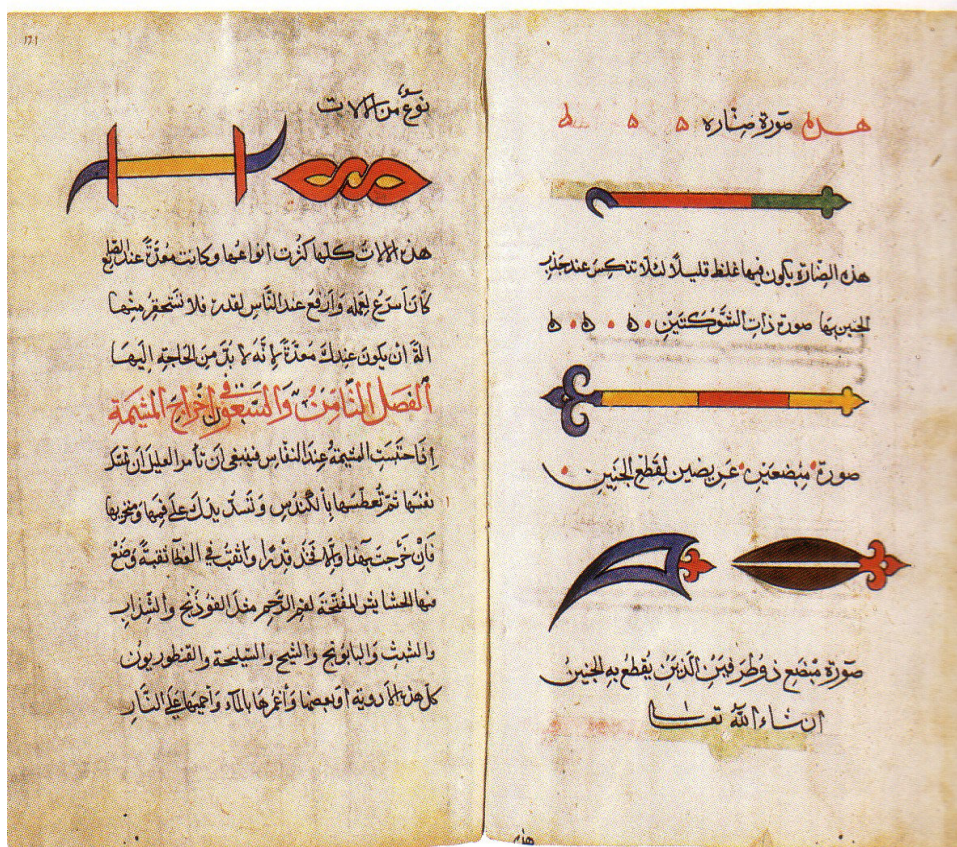 هذه صورة صنارة ه ه ط
هذه الصنارة يكون فيها غلظ قليلا لئلا تنكسر عند جذب
الجنين بها صورة ذات الشوكتين ه ه ه
صورة مبضعين عريضين لقطع الجنين
صورة مبضع ذو طرفين الذين يقطع به الجنين
ان شاء الله تعالى
هذه
١٢١
نوع من الالات
هذه الالات كلها كثرت انواعها وكانت معدة عند الصانع
كان اسرع لعمله وارفع عند الناس لقدره فلا تستحقر منها
الة ان يكون عندك معدة لانه لا بد من الحاجة اليها
الفصل الثامن والسبعون في اخراج المشيمة
اذا احتبست المشيمة عند النفاس فينبغي ان تأمر العليل ان تمسك
نفسها ثم تعطسها بالكندس وتشد يدك على فمها ومنخريها
فان خرجت بهذا والا فخذ قدرا واثقب في الغطا ثقبة وضع
فيها الحشايش المفتحة لفم الرحم مثل الفوذنج والشذاب
والشبث والبابونج والشيح والسليخة والقنطوريون
كل هذه الادوية او بعضها واغمرها بالماء واحميها على النار